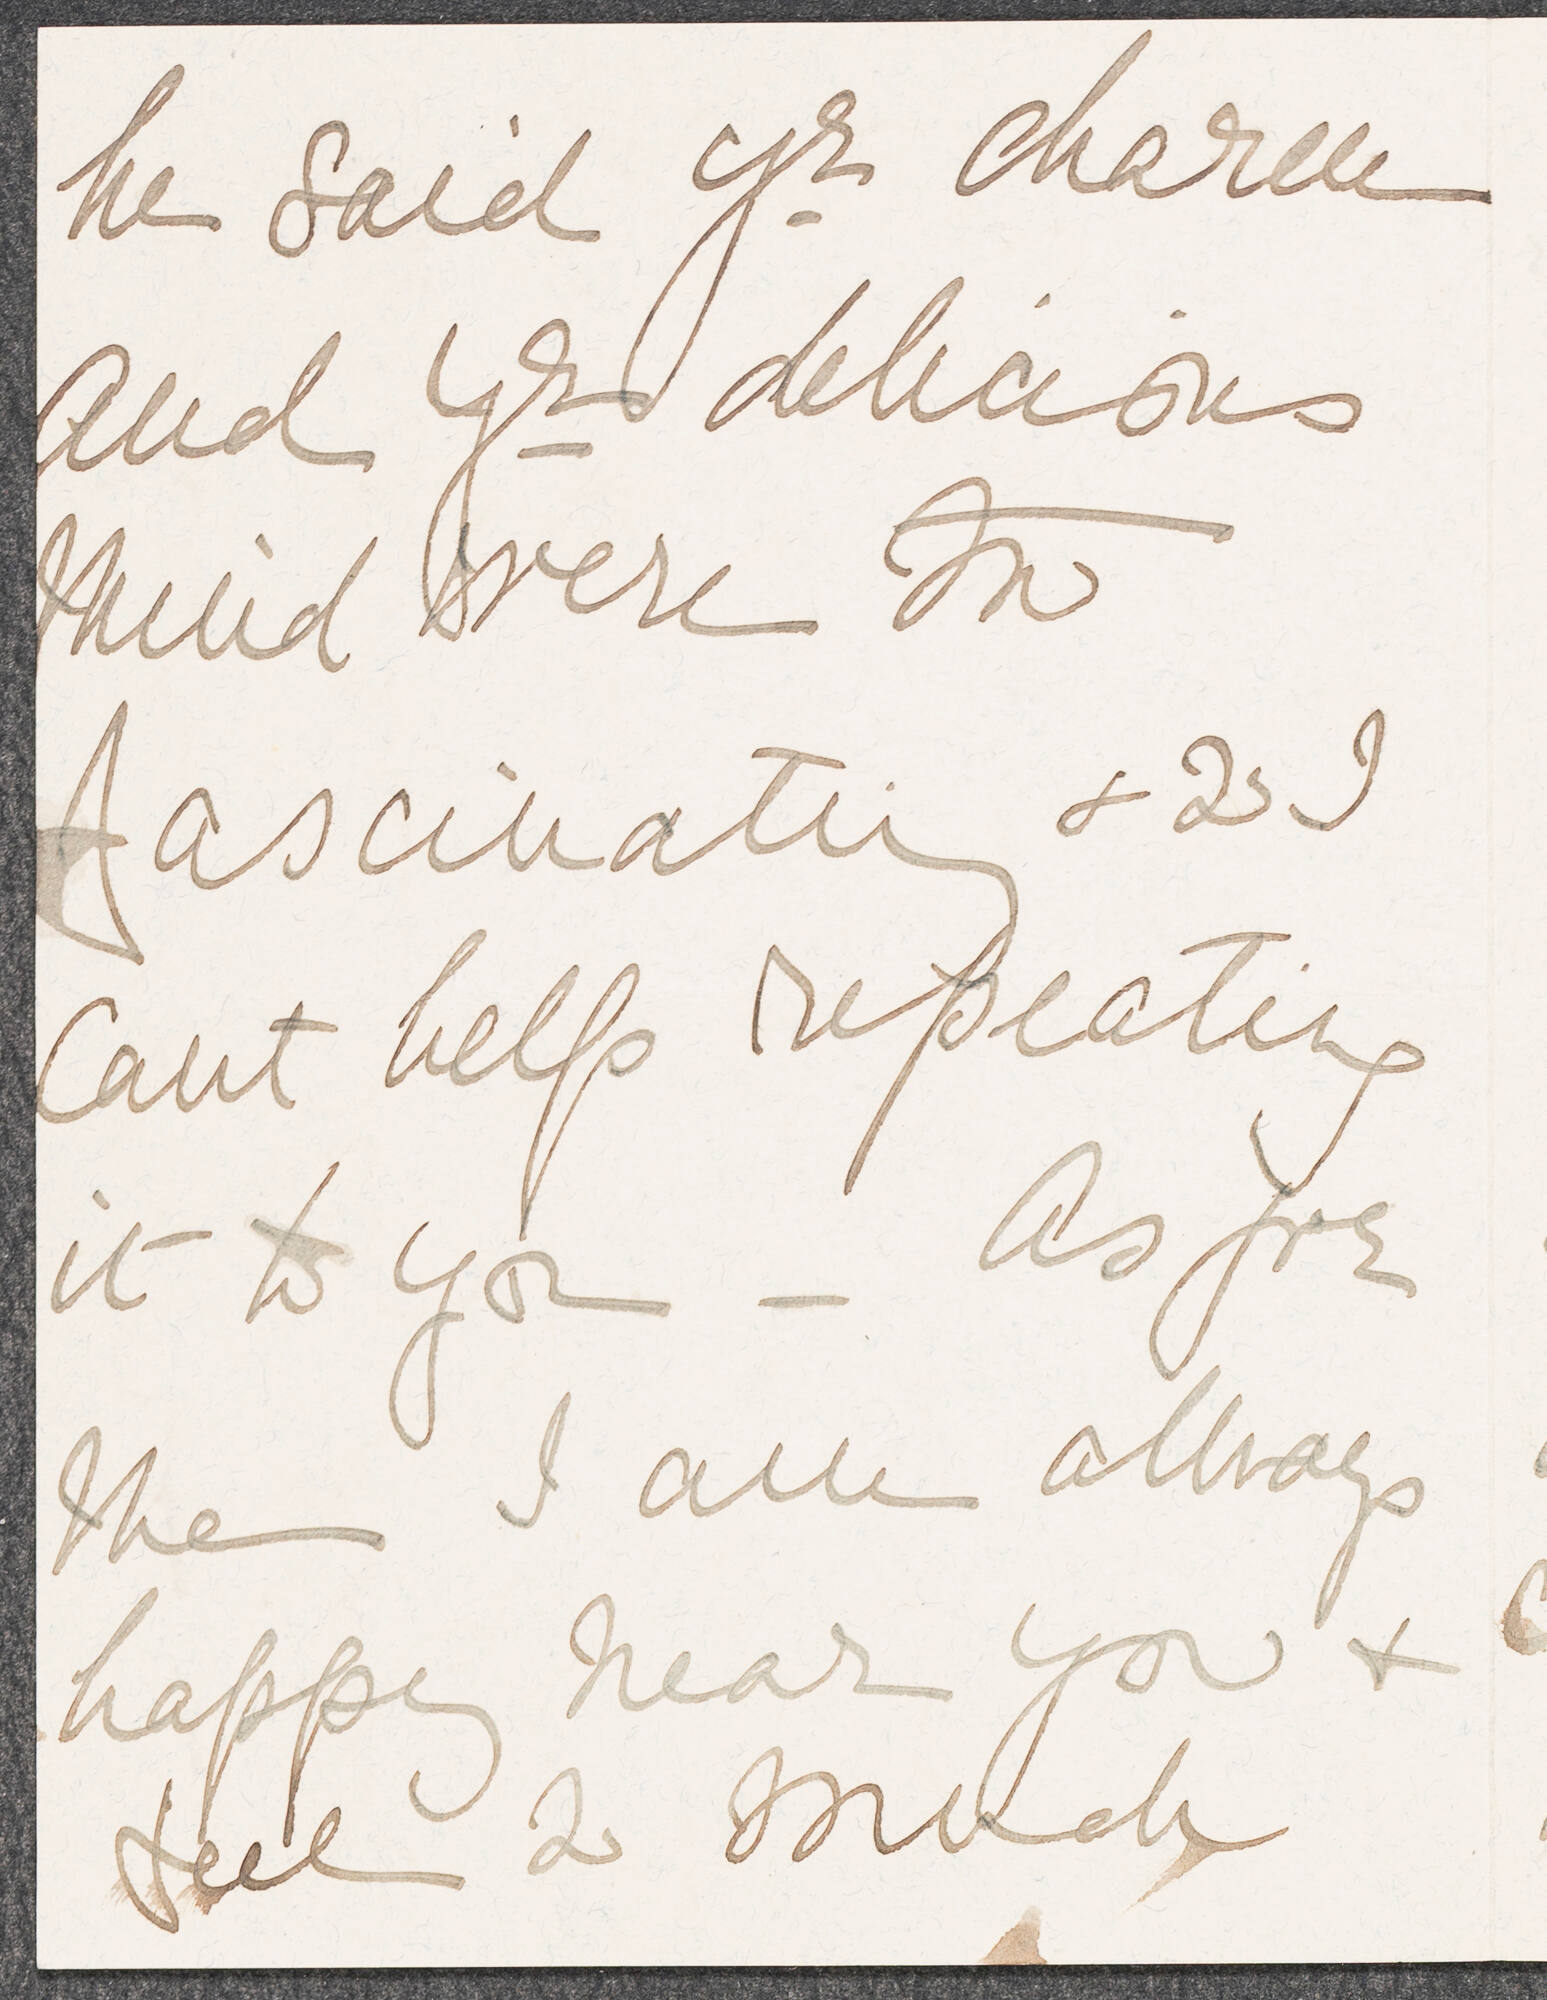 he said yr charm
and yr delicious
mind were too
fascinating + so I
Cant help repeating
it to you – As for
me I am always
happy near you +
feel so much